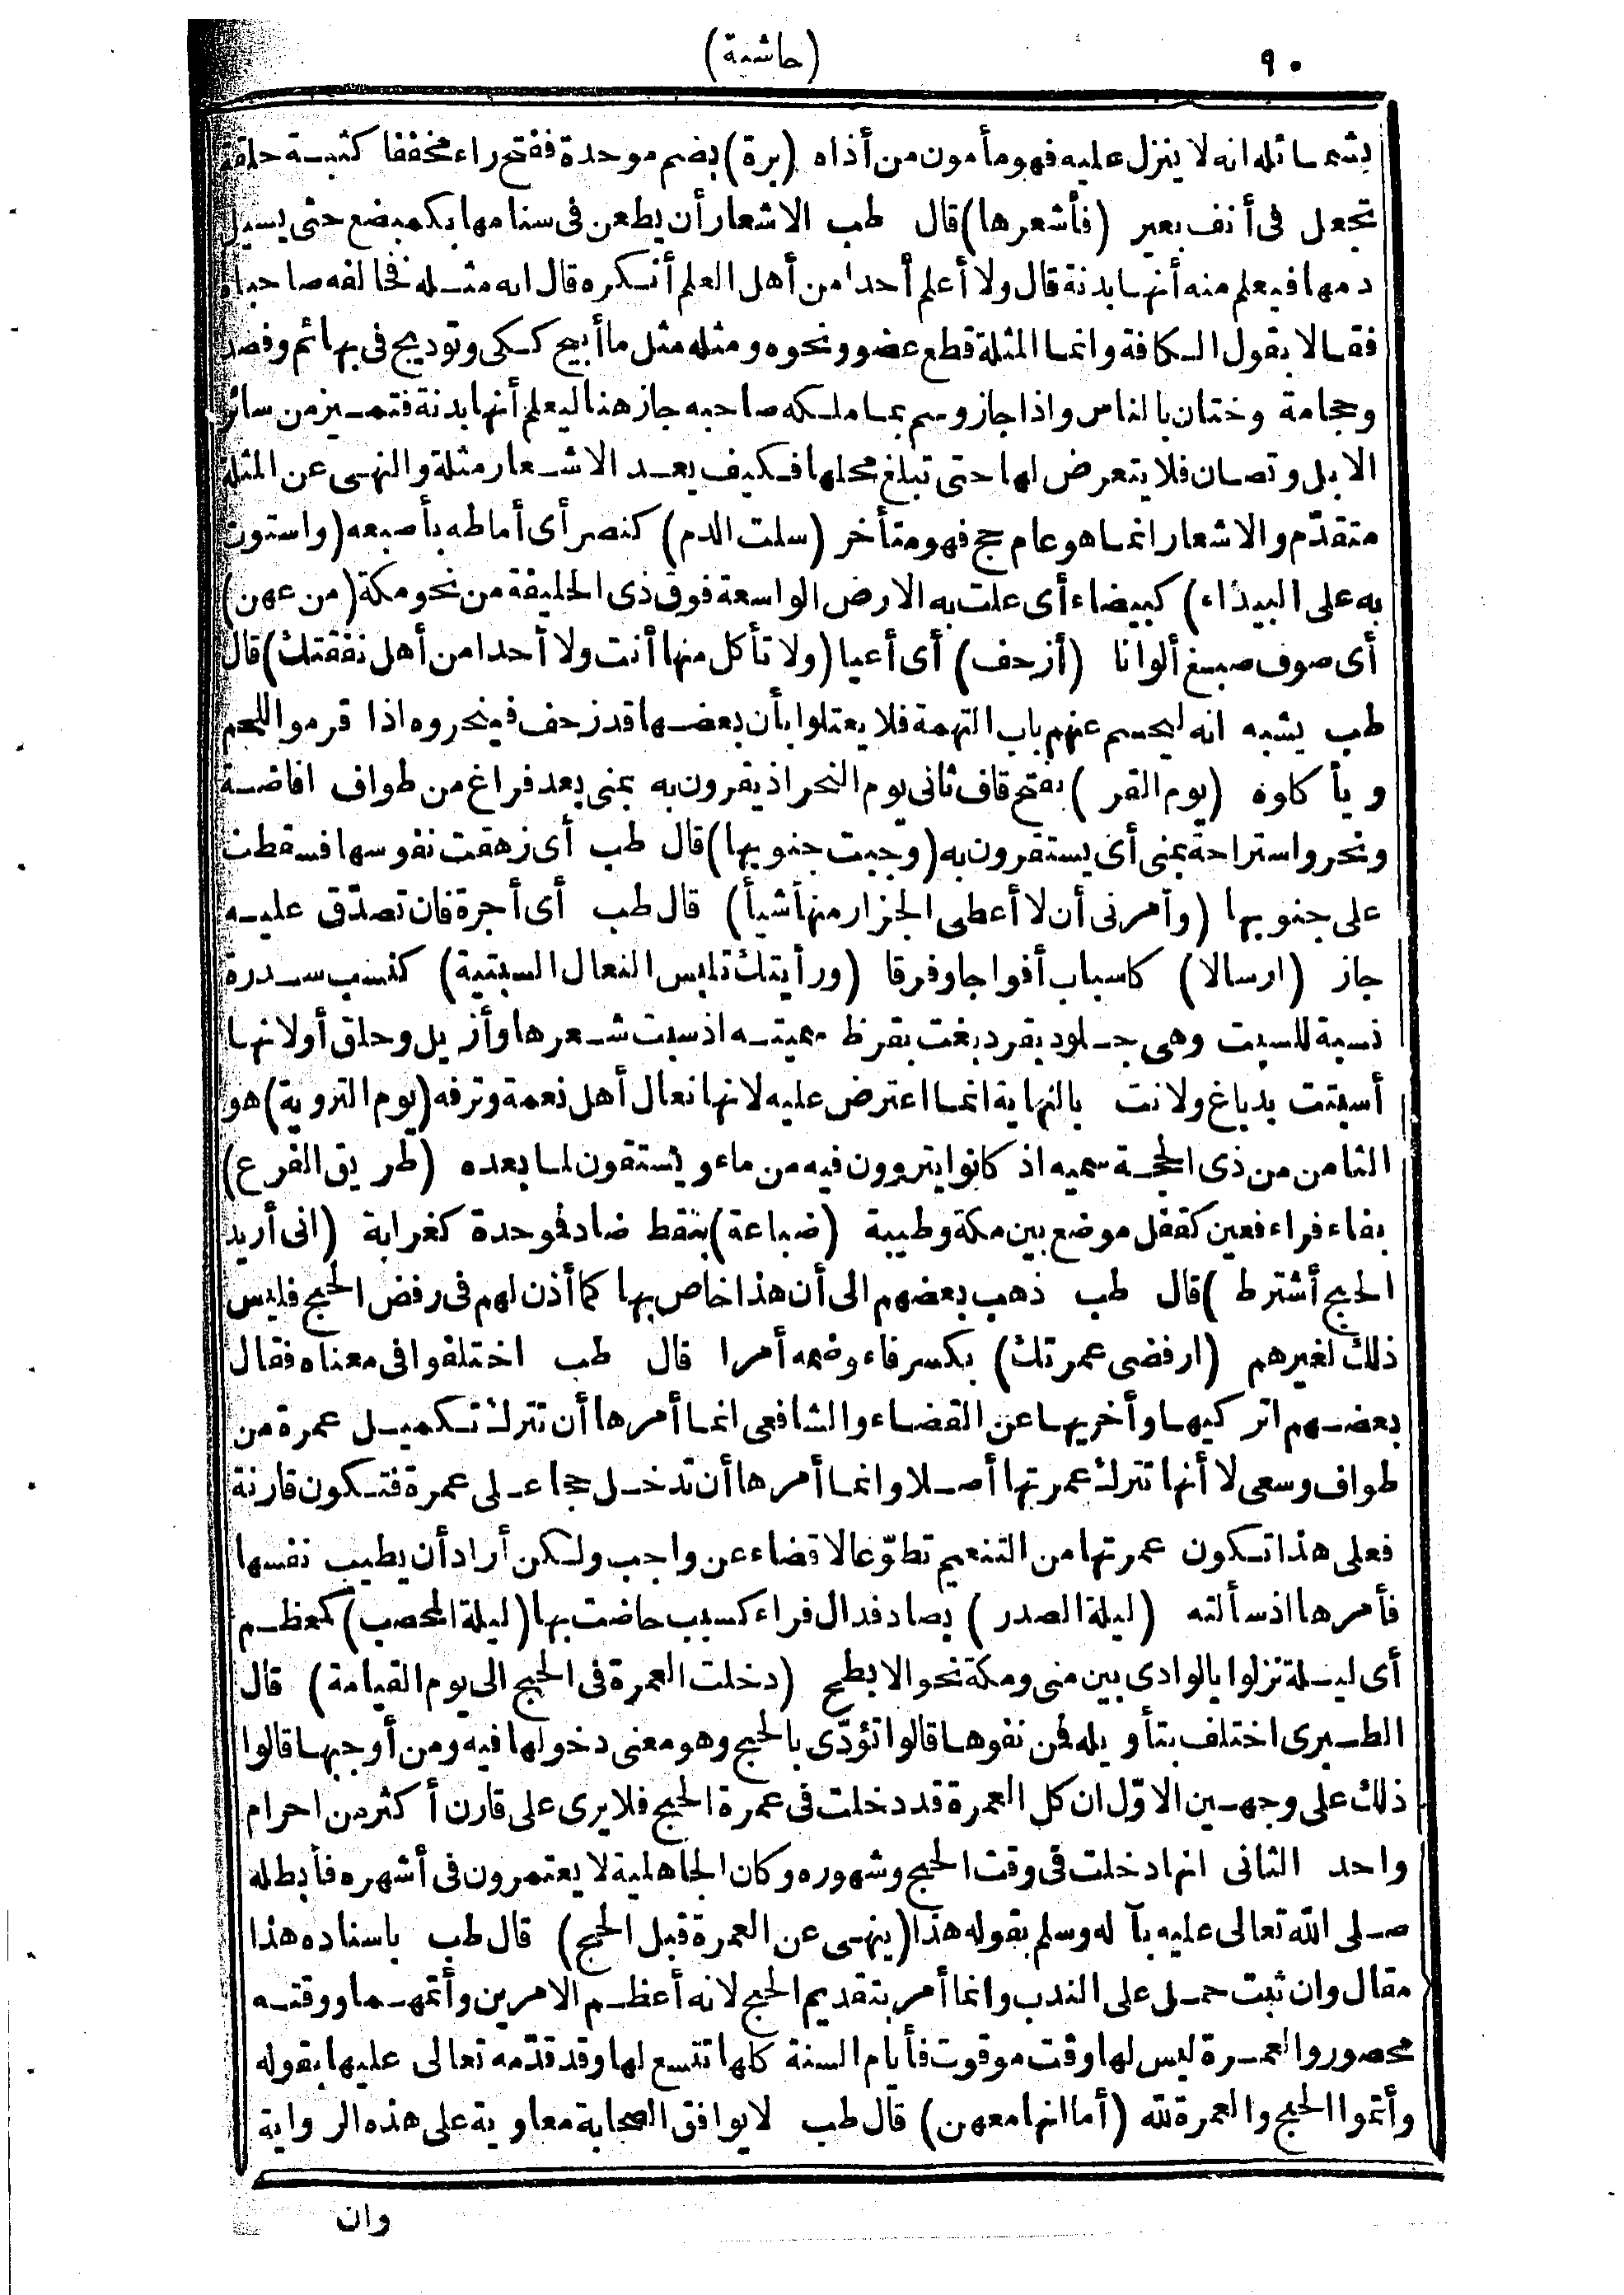 ٩٠
(حاشية)
بشمائله انه لا ينزل عليه فهو مأمون من أذاه (برة) بضم موحدة ففتح راء مخففا كثبة حلقة
تجعل فى أنف بعير (فأشعرها) قال طب الاشعار أن يطعن فى سنامها بكمبضع حتى يسيل
دمها فيعلم منه أنها بدنة قال ولا أعلم أحدا من أهل العلم أنكره قال انه مثله فخالفه صاحباه
فقالا بقول الكافة وانما المثلة قطع عضو ونحوه ومثله مثل ما أبيح ككى وتوديج فى بهائم وفصد
وحجامة وختان بالناس واذا جاز وسم بما ملكه صاحبه جاز هنا ليعلم أنها بدنة فتميز من سائر
الابل وتصان فلا يتعرض لها حتى تبلغ محلها فكيف يعد الاشعار مثلة والنهى عن المثلة
متقدّم والاشعار انما هو عام حج فهو متأخر (سلت الدم) كنصر أى أماطه بأصبعه (واستوت
به على البيداء) كبيضاء أى علت به الارض الواسعة فوق ذى الحليفة من نحو مكة (من عهن)
أى صوف صبغ ألوانا (أزحف) أى أعيا (ولا تأكل منها أنت ولا أحدا من أهل نفقتك) قال
طب يشبه انه ليحسم عنهم باب التهمة فلا يعتلوا بأن بعضها قد زحف فينحروه اذا قرموا اللحم
ويأكلوه (يوم القر) بفتح قاف ثانى يوم النحر اذ يقرون به بمنى بعد فراغ من طواف افاضة
ونحر واستراحة بمنى أى يستقرون به (وجبت جنوبها) قال طب أى زهقت نفوسها فسقطت
على جنوبها (وأمرنى أن لا أعطى الجزار منها شيأ) قال طب أى أجرة فان تصدّق عليه
جاز (ارسالا) كاسباب أفواجا وفرقا (ورأيتك تلبس النعال السبتية) كنسب سدرة
نسبة للسبت وهى جلود بقر دبغت بقرظ سميت به اذ سبت شعرها وأزيل وحلق أو لانها
أسبتت بدباغ ولانت بالنهاية انما اعترض عليه لانها نعال أهل نعمة وترفه (يوم التروية) هو
الثامن من ذى الحجة سمى به اذ كانوا يتروون فيه من ماء ويستقون لما بعده (طريق الفرع)
بفاء فراء فعين كقفل موضع بين مكة وطيبة (ضباعة) بنقط ضاد فوحدة كغرابة (انى أريد
الحج أشترط) قال طب ذهب بعضهم الى أن هذا خاص بها كما أذن لهم فى رفض الحج فليس
ذلك لغيرهم (ارفضى عمرتك) بكسر فاء وضمه أمرا قال طب اختلفوا فى معناه فقال
بعضهم اتركيها وأخريها عن القضاء والشافعى انما أمرها أن تترك تكميل عمرة من
طواف وسعى لا أنها تترك عمرتها أصلا وانما أمرها أن تدخل حجا على عمرة فتكون قارنة
فعلى هذا تكون عمرتها من التنعيم تطوّعا لا قضاء عن واجب ولكن أراد أن يطيب نفسها
فأمرها اذ سألته (ليلة الصدر) بصاد فدال فراء كسبب حاضت بها (ليلة المحصب) كمعظم
أى ليلة نزلوا بالوادى بين منى ومكة نحو الابطح (دخلت العمرة فى الحج الى يوم القيامة) قال
الطبرى اختلف بتأويله فمن نفوها قالوا تؤدّى بالحج وهو معنى دخولها فيه ومن أوجبها قالوا
ذلك على وجهين الاوّل ان كل العمرة قد دخلت فى عمرة الحج فلا يرى على قارن أكثر من احرام
واحد الثانى انها دخلت فى وقت الحج وشهوره وكان الجاهلية لا يعتمرون فى أشهره فأبطله
صلى الله تعالى عليه بآله وسلم بقوله هذا (ينهى عن العمرة قبل الحج) قال طب باسناده هذا
مقال وان ثبت حمل على الندب وانما أمر بتقديم الحج لانه أعظم الامرين وأتمهما ووقته
محصور والعمرة ليس لها وقت موقوت فأيام السنة كلها تتسع لها وقد قدّمه تعالى عليها بقوله
وأتموا الحج والعمرة لله (أما انها معهن) قال طب لا يوافق الصحابة معاوية على هذه الرواية
وان